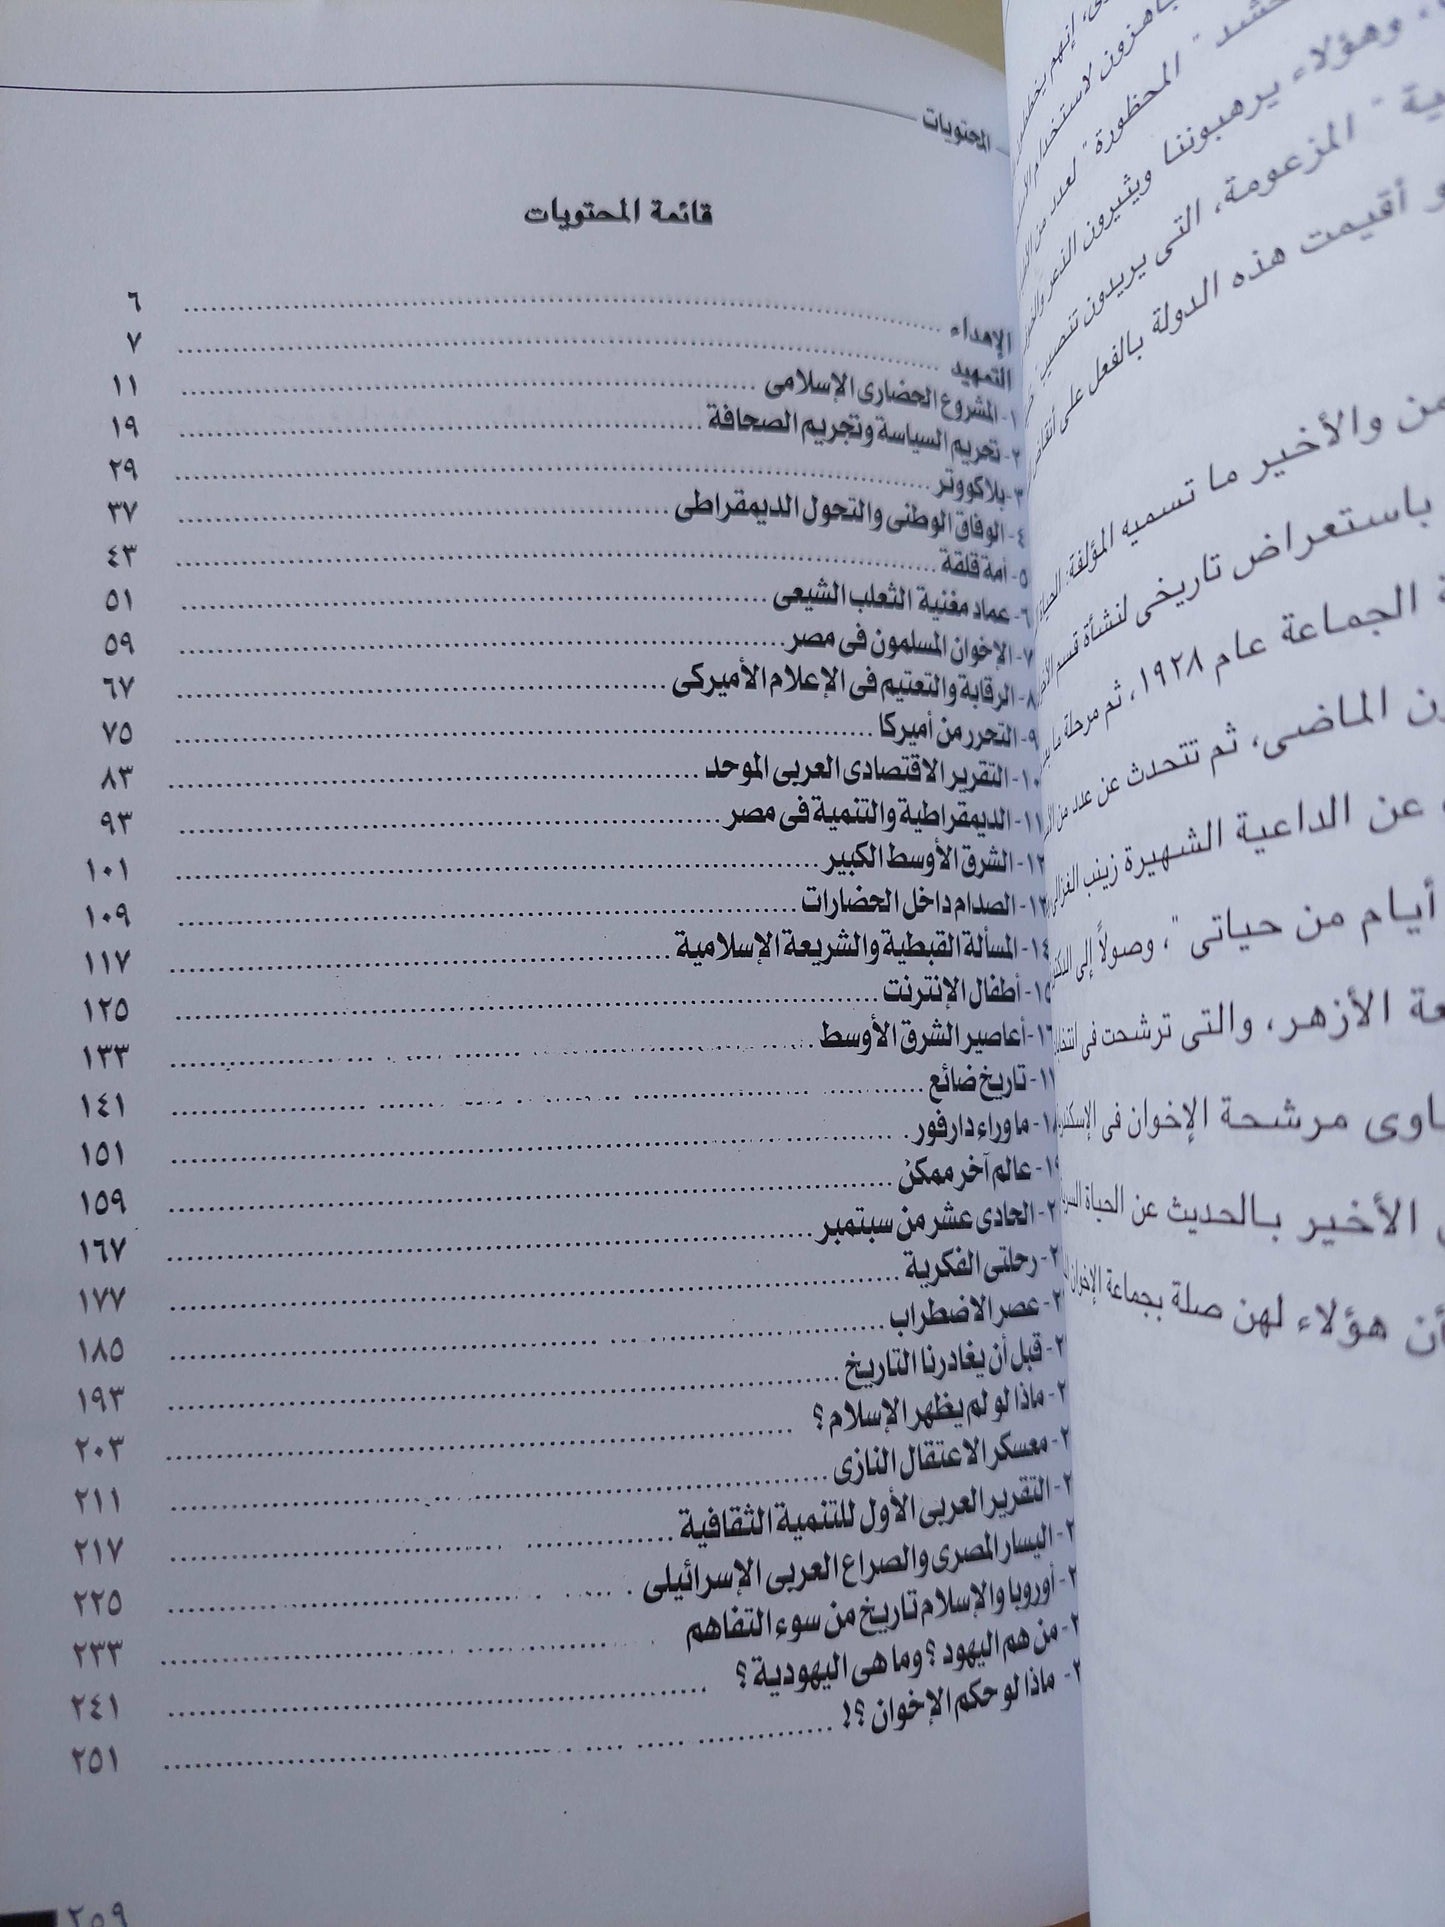 المحتويات
قائمة المحتويات
الإهداء ........ ٦
التمهيد ........ ٧
١- المشروع الحضارى الإسلامى ........ ١١
٢- تحريم السياسة وتجريم الصحافة ........ ١٩
٣- بلاكووتر ........ ٢٩
٤- الوفاق الوطنى والتحول الديمقراطى ........ ٣٧
٥- أمة قلقة ........ ٤٣
٦- عماد مغنية الثعلب الشيعى ........ ٥١
٧- الإخوان المسلمون فى مصر ........ ٥٩
٨- الرقابة والتعتيم فى الإعلام الأميركى ........ ٦٧
٩- التحرر من أميركا ........ ٧٥
١٠- التقرير الاقتصادى العربى الموحد ........ ٨٣
١١- الديمقراطية والتنمية فى مصر ........ ٩٣
١٢- الشرق الأوسط الكبير ........ ١٠١
١٣- الصدام داخل الحضارات ........ ١٠٩
١٤- المسألة القبطية والشريعة الإسلامية ........ ١١٧
١٥- أطفال الإنترنت ........ ١٢٥
١٦- أعاصير الشرق الأوسط ........ ١٣٣
١٧- تاريخ ضائع ........ ١٤١
١٨- ما وراء دارفور ........ ١٥١
١٩- عالم آخر ممكن ........ ١٥٩
٢- الحادى عشر من سبتمبر ........ ١٦٧
٢- رحلتى الفكرية ........ ١٧٧
٢- عصر الاضطراب ........ ١٨٥
٢- قبل أن يغادرنا التاريخ ........ ١٩٣
٢- ماذا لو لم يظهر الإسلام ؟ ........ ٢٠٣
٢- معسكر الاعتقال النازى ........ ٢١١
٢- التقرير العربى الأول للتنمية الثقافية ........ ٢١٧
٢- اليسار المصرى والصراع العربى الإسرائيلى ........ ٢٢٥
٢- أوروبا والإسلام تاريخ من سوء التفاهم ........ ٢٣٣
٢- من هم اليهود ؟ وما هى اليهودية ؟ ........ ٢٤١
- ماذا لو حكم الإخوان ؟! ........ ٢٥١
٢٥٩
إنهم يخططون
يجاهزون لاستخدام
حشد " المحظورة " لعدد من
وهؤلاء يرهبوننا ويثيرون الذعر
" المزعومة، التى يريدون تنصيب
و أقيمت هذه الدولة بالفعل على
والأخير ما تسميه المؤلفة: الحياة
باستعراض تاريخى لنشأة قسم
الجماعة عام ١٩٢٨، ثم مرحلة ما
الماضى، ثم تتحدث عن عدد من
عن الداعية الشهيرة زينب الغزالى
أيام من حياتى "، وصولاً إلى
الأزهر، والتى ترشحت فى
مرشحة الإخوان فى
الأخير بالحديث عن الحياة
أن هؤلاء لهن صلة بجماعة الإخوان